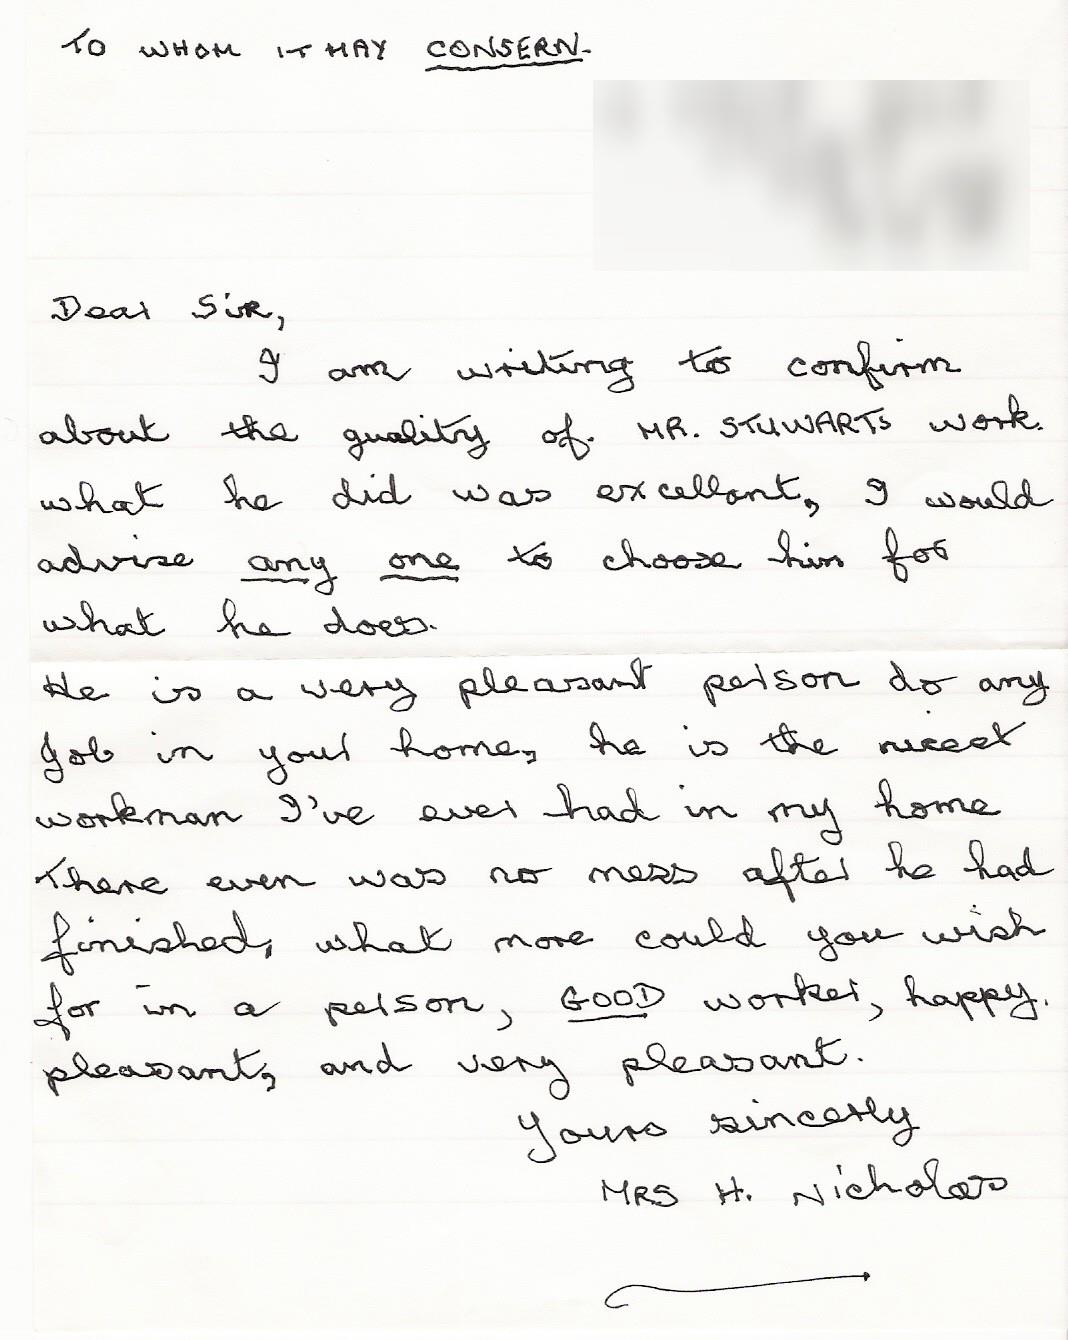 TO WHOM IT MAY CONSERN.
Dear Sir,
I am writing to confirm
about the quality of. MR. STUWARTS work.
what he did was excellant, I would
advise any one to choose him for
what he does.
He is a very pleasant person do any
Job in your home, he is the nicest
workman I've ever had in my home
There even was no mess after he had
finished, what more could you wish
for in a person, GOOD worker, happy.
pleasant, and very pleasant.
Yours sincerly
MRS H. Nicholas